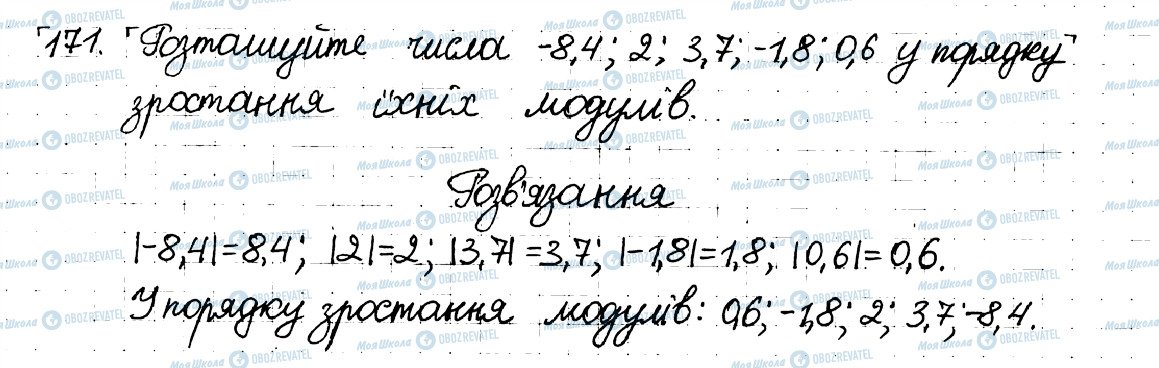 171. Розташуйте числа -8,4; 2; 3,7; -1,8; 0,6 у порядку
зростання їхніх модулів.
Розв'язання
|-8,4|=8,4; |2|=2; |3,7|=3,7; |-1,8|=1,8; |0,6|=0,6.
У порядку зростання модулів: 0,6; -1,8; 2; 3,7; -8,4.